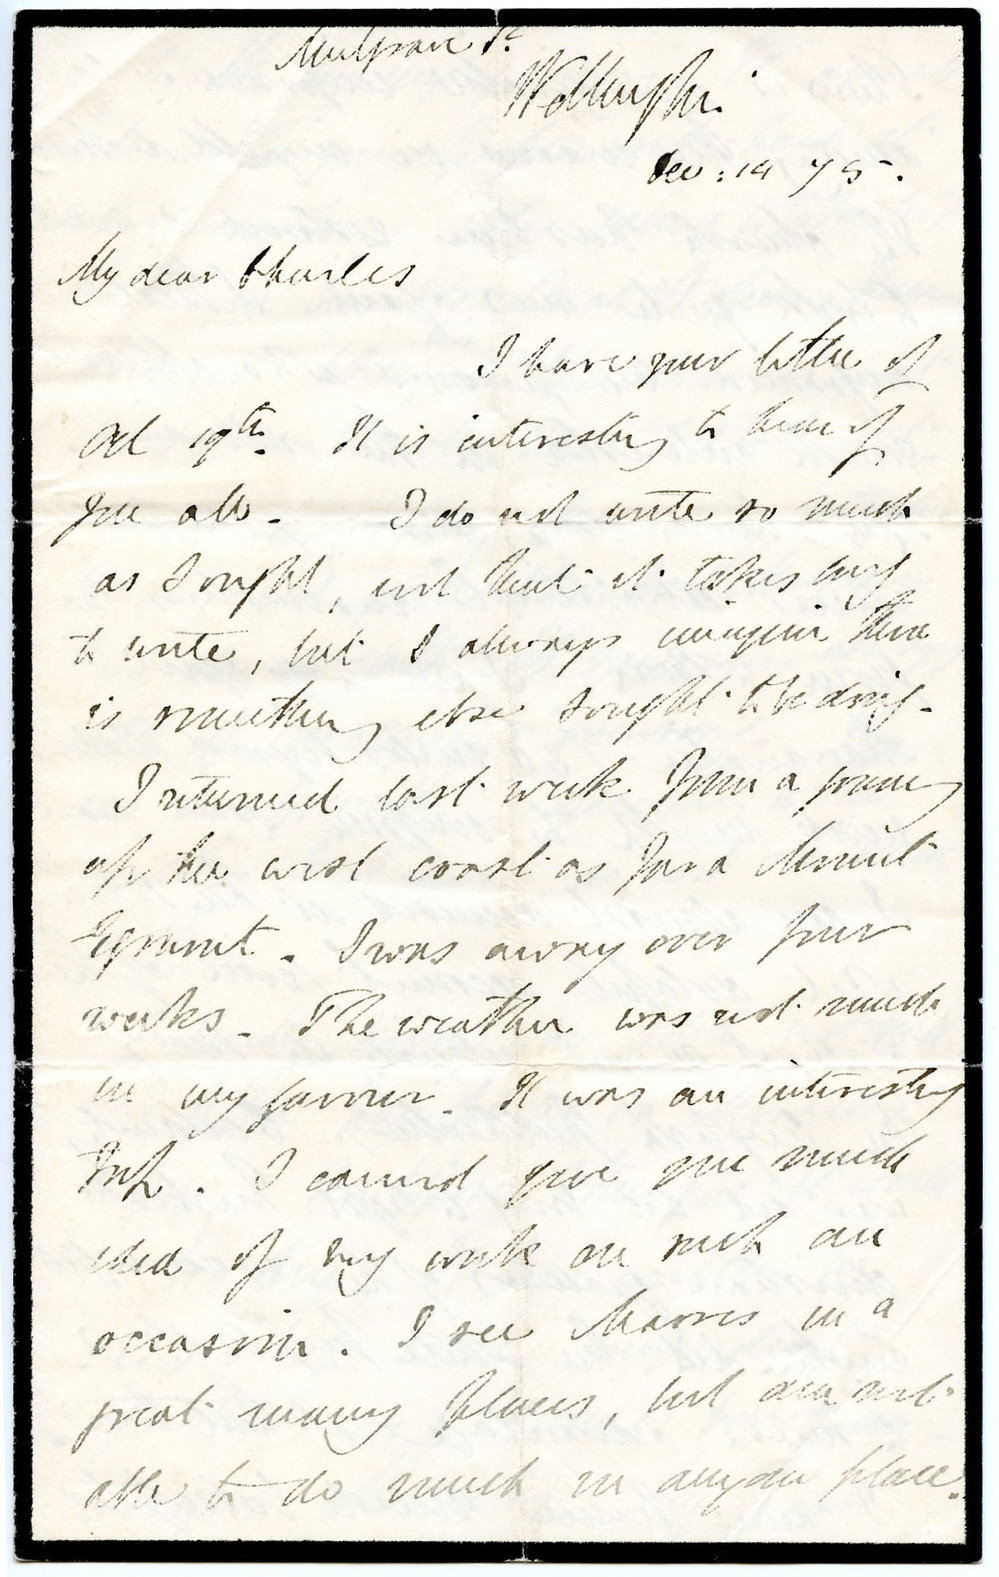 Mulgrave St
Wellington
Dec: 14 75.
My dear Charles
I have your letter of
Oct 19th. It is interesting to hear of
you all. I do not write so much
as I ought, not that it takes long
to write, but I always imagine there
is something else I ought to be doing.
I returned last week from a journey
up the west coast as far as Mount
Egmont. I was away over four
weeks. The weather was not much
in my favour. It was an interesting
trip. I cannot give you much
idea of my work on such an
occasion. I see Maoris in a
great many places, but am not
able to do much in any one place.